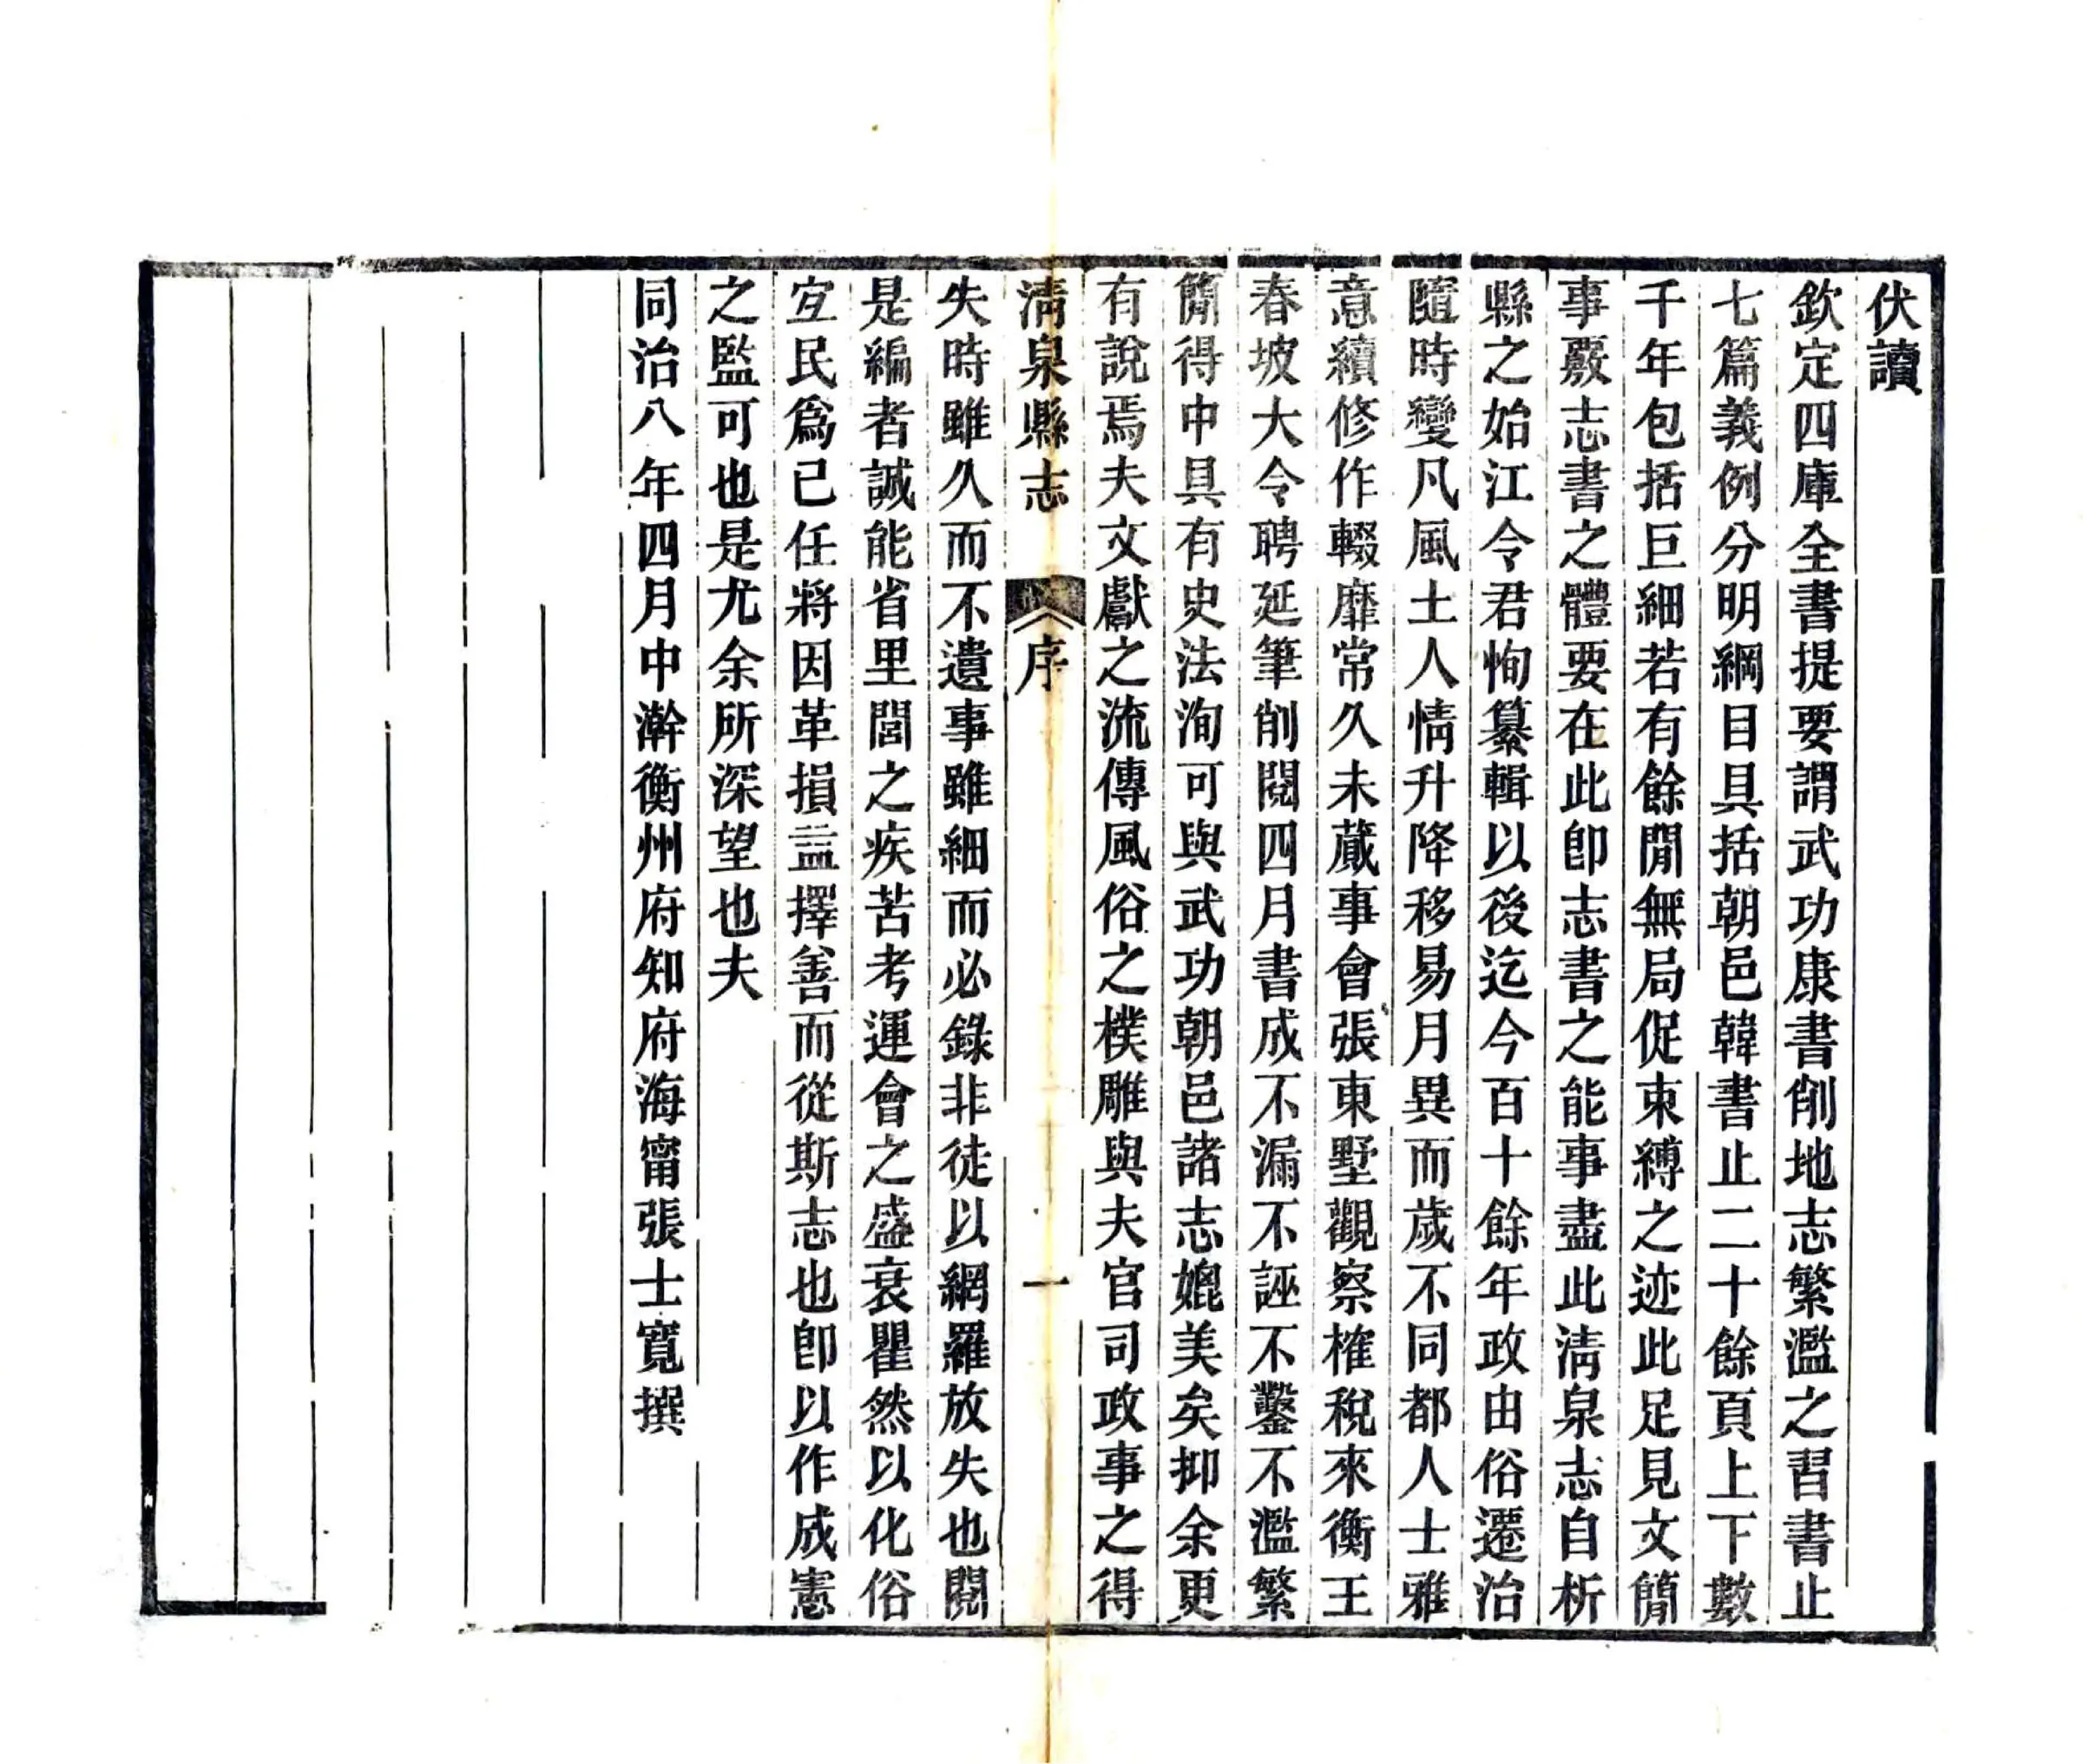 伏讀
欽定四庫全書提要謂武功康書削地志繁濫之習書止
七篇義例分明綱目具括朝邑韓書止二十餘頁上下數
千年包括巨細若有餘閒無局促束縛之迹此足見文簡
事覈志書之體要在此卽志書之能事盡此淸泉志自析
縣之始江令君恂纂輯以後迄今百十餘年政由俗遷治
隨時變凡風土人情升降移易月異而歲不同都人士雅
意續修作輟靡常久未蕆事會張東墅觀察榷稅來衡王
春坡大令聘延筆削閱四月書成不漏不誣不鑿不濫繁
簡得中具有史法洵可與武功朝邑諸志媲美矣抑余更
有說焉夫文獻之流傳風俗之樸雕與夫官司政事之得
淸泉縣志 序 一
失時雖久而不遺事雖細而必錄非徒以網羅放失也閱
是編者誠能省里閭之疾苦考運會之盛衰瞿然以化俗
宜民爲己任將因革損益擇善而從斯志也卽以作成憲
之監可也是尤余所深望也夫
同治八年四月中澣衡州府知府海甯張士寬撰